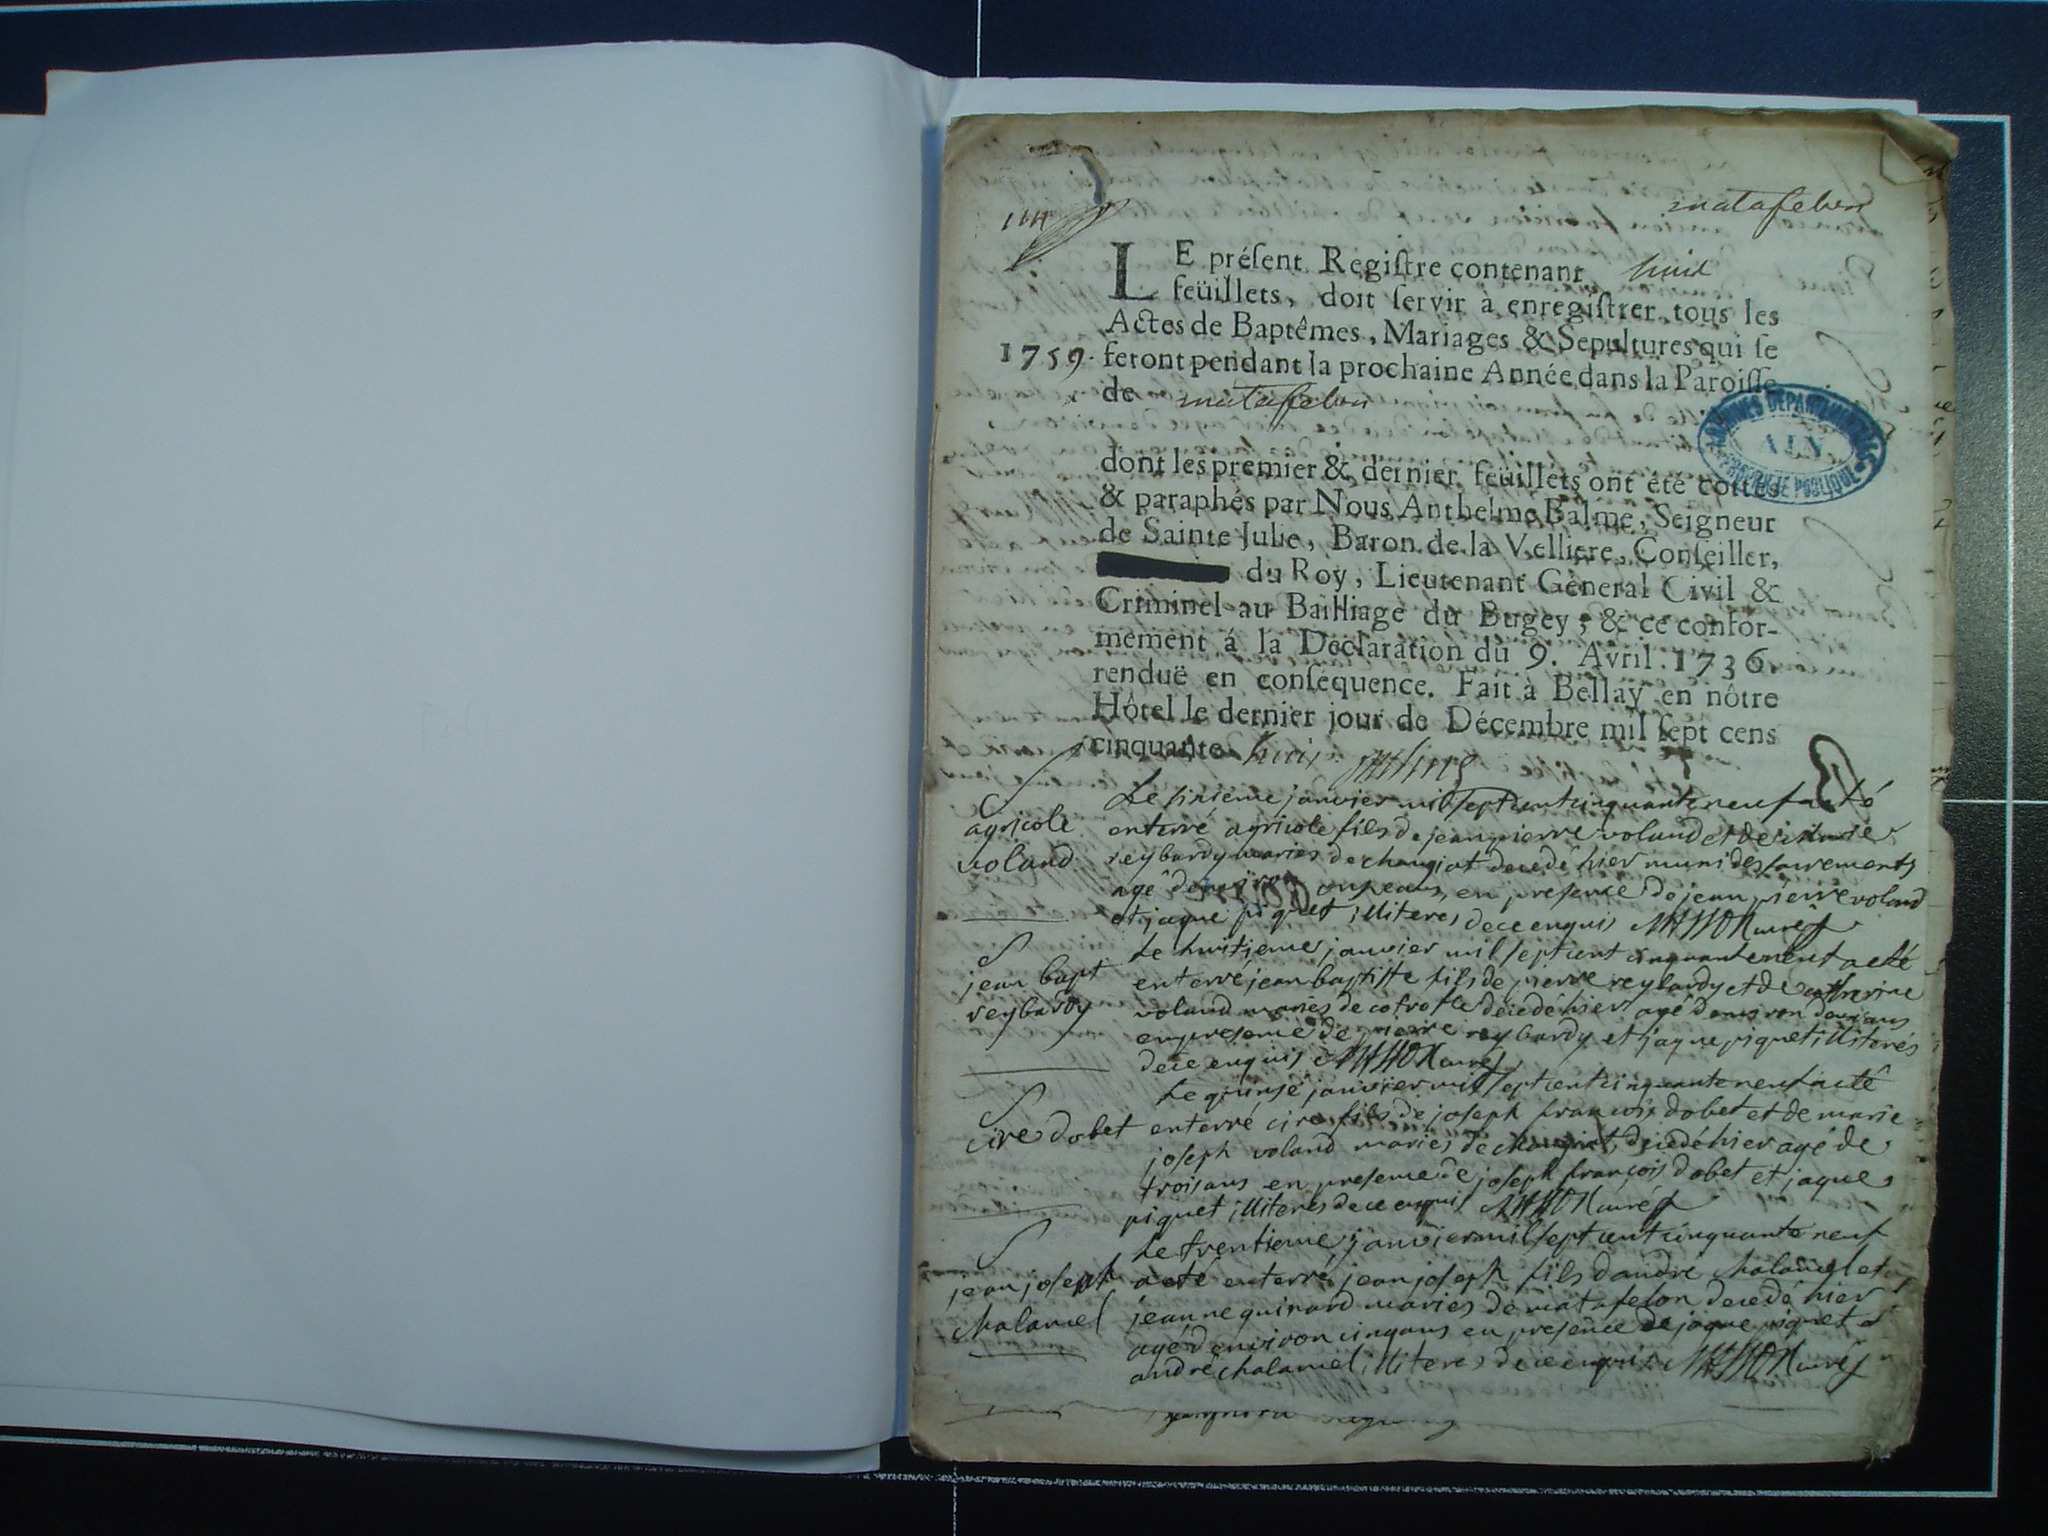 matafelon
LE présent Registre contenant huit
feüillets, doit servir à enregistrer tous les
Actes de Baptêmes, Mariages & Sepultures qui se
1759. feront pendant la prochaine Année dans la Paroisse
de matafelon
ARCHIVES DEPARTEMENTALES
AIN
PROPRIETE PUBLIQUE
dont les premier & dernier feüillets ont été cottés
& paraphés par Nous Anthelme Balme, Seigneur
de Sainte Julie, Baron de la Velliere, Conseiller,
du Roy, Lieutenant Géneral Civil &
Criminel au Bailliage du Bugey; & ce confor-
mement á la Déclaration du 9. Avril 1736.
renduë en conséquence. Fait à Bellay en nôtre
Hôtel le dernier jour de Décembre mil sept cens
cinquante huit
S
agricole
voland
Le sixieme janvier mil sept cent cinquante neuf a eté
enterré agricole fils de jean pierre voland et de
reybardy mariés de changiat decedé hier muni des sacrements
agé denviron ans en presence de jean pierre voland
et jaque piquet illiteres de ce enquis curé
S
jean bapt
reybardy
Le huitieme janvier mil sept cent cinquante neuf a eté
enterré jean baptiste fils de pierre reybardy et de catherine
voland mariés de decedé hier agé denviron ans
en presence de pierre reybardy et jaque piquet illiterés
de ce enquis curé
S
cire dobet
Le quinse janvier mil sept cent cinquante neuf a eté
enterré cire fils de joseph françois dobet et de marie
joseph voland mariés de changiat, decedé hier agé de
trois ans en presence de joseph françois dobet et jaque
piquet illiterés de ce enquis curé
S
jean joseph
chalamel
Le trentieme janvier mil sept cent cinquante neuf
a eté enterré jean joseph fils dandré chalamel et
jeanne guinard mariés de matafelon decedé hier
agé denviron cinq ans en presence de jaque piquet &
andré chalamel illiteres de ce enquis curé